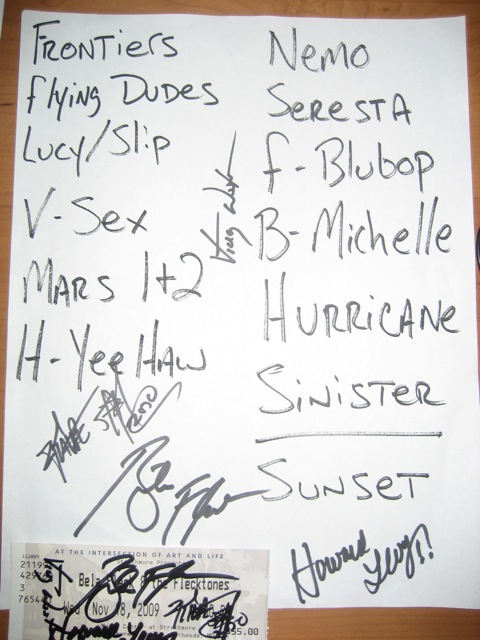 FRONTIERS
flying DUDES
LUCY/Slip
V-Sex
MARS 1+2
H-Yee HAW
NEMO
SERESTA
f-Blubop
B-Michelle
HURRICANE
SINISTER
SUNSET
Victor Wooten
Béla Fleck
Howard Levy!!
AT THE INTERSECTION OF ART AND LIFE
Bela Fleck & the Flecktones
Wed Nov 18, 2009
Howard Levy